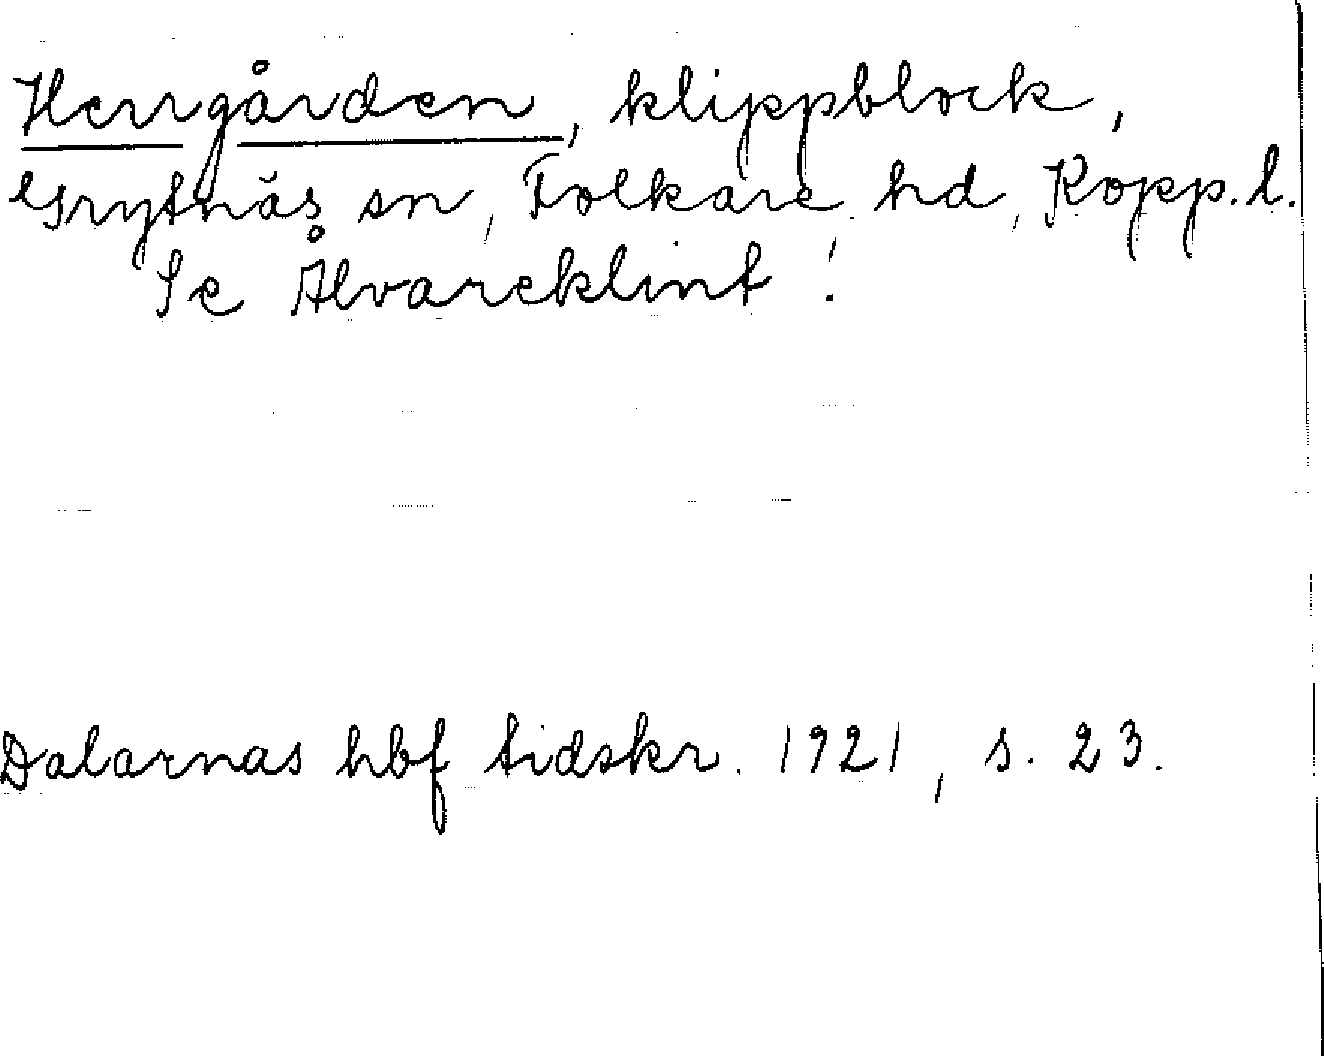 Herrgården, klippblock,
Grytnäs sn, Folkare hd, Kopp. l.
Se Ålvareklint!
Dalarnas hbf tidskr. 1921, s. 23.